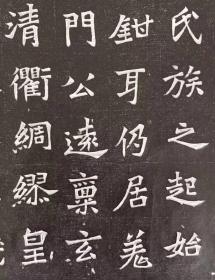 氏族之起始
鉗耳仍居羗
門公遠稟玄
清衢綢繆皇